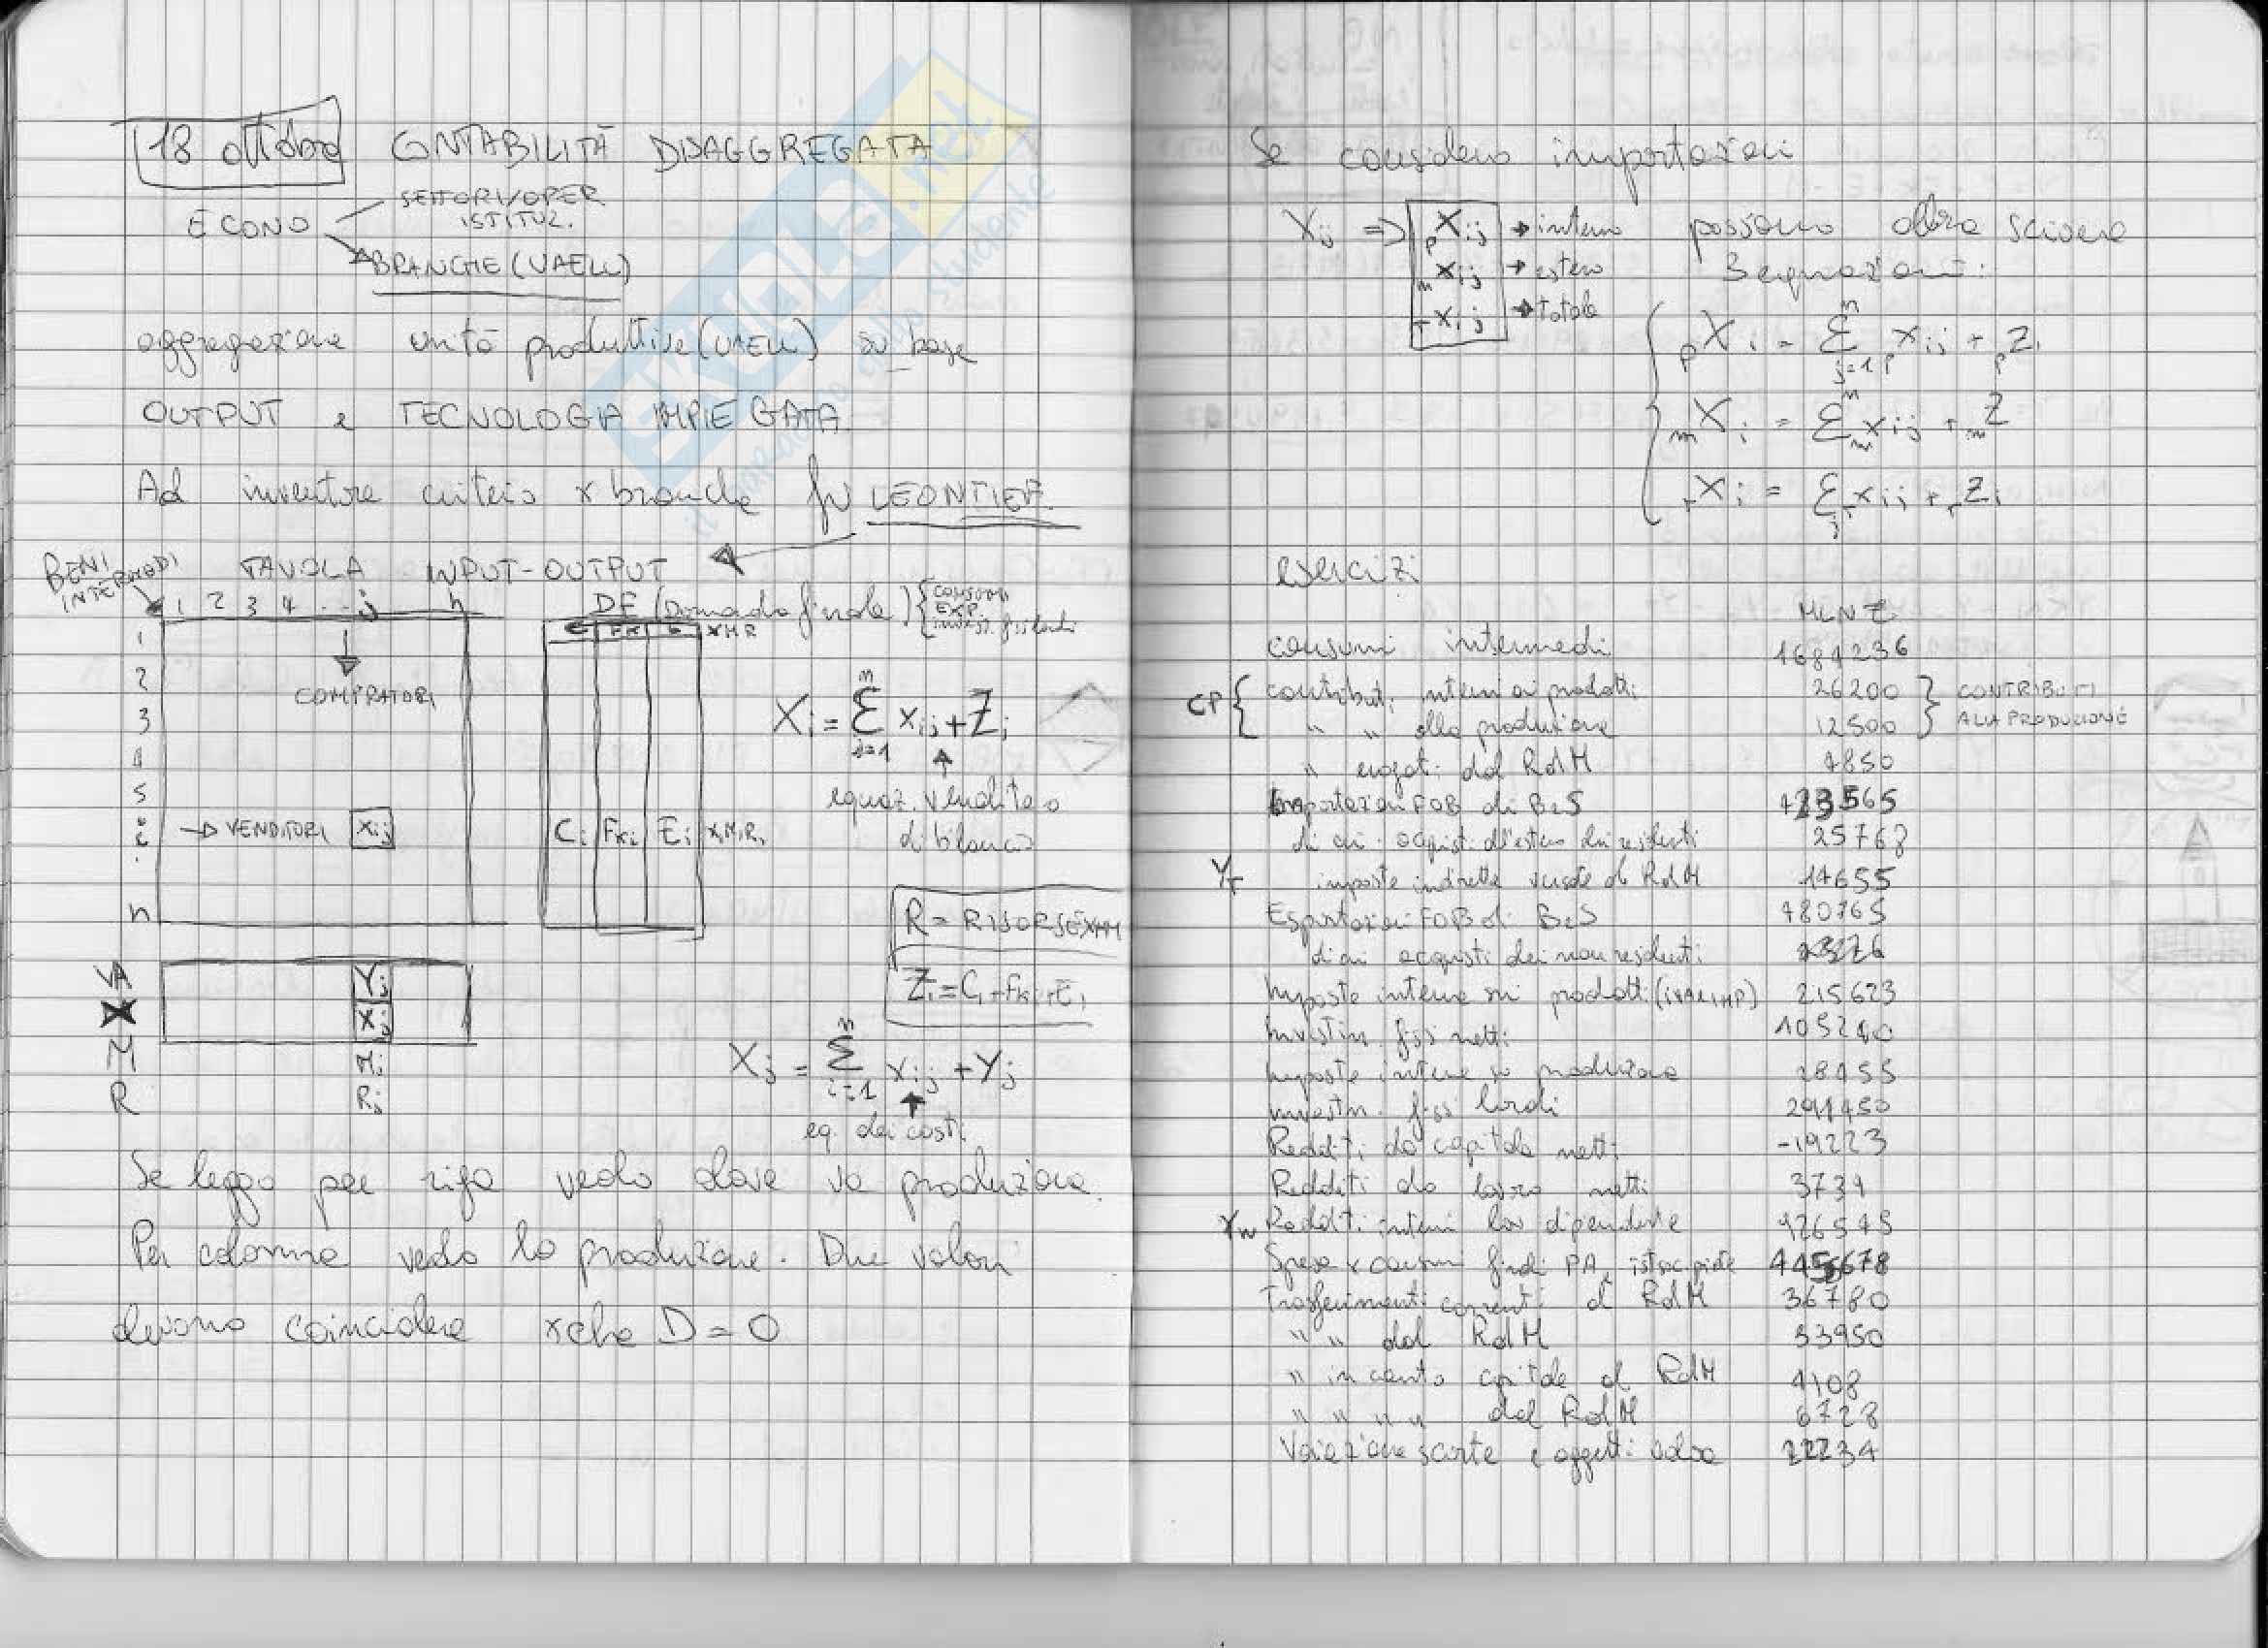 18 ottobre CONTABILITÀ DISAGGREGATA
ECONO
SETTORI/OPER
ISTITUZ.
BRANCHE (UAEL)
aggregazione unità produttive (UAEL) su base
OUTPUT e TECNOLOGIA IMPIEGATA
Ad inventore criterio x branche fu LEONTIEF
BENI
INTERMEDI
TAVOLA INPUT-OUTPUT
1 2 3 4 ... j n
DF (Domanda finale)
CONSUMI
EXP.
1
2
3
4
5
i
n
COMPRATORI
→ VENDITORI Xij
Ci FKi Ei
Xi = Σ xij + Zi
n
j=1
equaz. vendite o
di bilancio
R = RISORSE
Zi = Ci + FKi + Ei
VA
X
M
R
Yj
Xj
Mj
Rj
Xj = Σ xij + Yj
n
i=1
eq. dei costi
Se leggo per riga vedo dove va produzione.
Per colonna vedo la produzione. Due valori
devono coincidere xche D = 0
Se considero importazioni
Xij ⇒
pXij → interno
mXij → estero
TXij → totale
possiamo allora scrivere
3 equazioni:
pXi = Σ pxij + pZi
n
j=1
mXi = Σ mxij + mZ
n
TXi = Σ Txij + TZi
j
esercizi
MLN £
consumi intermedi 1684236
CP { contributi interni ai prodotti 26200 } CONTRIBUTI
" " alla produzione 12500 ALLA PRODUZIONE
" erogati dal RdM 4850
Importazioni FOB di BeS 423565
di cui acquisti all'estero dei residenti 25768
YT imposte indirette versate al RdM 14655
Esportazioni FOB di BeS 480765
di cui acquisti dei non residenti
Imposte interne sui prodotti 215623
Investim. fissi netti 105240
Imposte interne su produzione 28455
Investim. fissi lordi 291450
Redditi da capitale netti -19223
Redditi da lavoro netti 3734
Yw Redditi interni lav dipendente 926545
Spese x consumi finali PA
Trasferimenti correnti al RdM 36780
" " dal RdM 33950
" in conto capitale al RdM 4108
" " " " dal RdM 6728
Variazione scorte e oggetti valore 22234